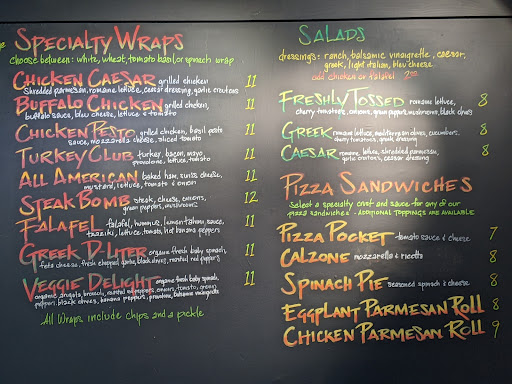 SPECIALTY WRAPS
choose between: white, wheat, tomato basil or spinach wrap
CHICKEN CAESAR grilled chicken 11
shredded parmesan, romaine lettuce, caesar dressing, garlic croutons
BUFFALO CHICKEN grilled chicken, 11
buffalo sauce, bleu cheese, lettuce & tomato
CHICKEN PESTO grilled chicken, basil pesto 11
sauce, mozzarella cheese, sliced tomato
TURKEY CLUB turkey, bacon, mayo 11
provolone, lettuce, tomato
ALL AMERICAN baked ham, swiss cheese, 11
mustard, lettuce, tomato & onion
STEAK BOMB steak, cheese, onions, 12
green peppers, mushrooms
FALAFEL falafel, hummus, lemon tahini, sauce, 11
tzatziki, lettuce, tomato, hot banana peppers
GREEK D-LITER organic fresh baby spinach, 11
feta cheese, fresh chopped garlic, black olives, roasted red peppers
VEGGIE DELIGHT organic fresh baby spinach, 11
organic arugula, broccoli, roasted red peppers, onions, tomato, green
peppers, black olives, banana peppers, provolone, balsamic vinaigrette
All Wraps include chips and a pickle
SALADS
dressings: ranch, balsamic vinaigrette, caesar,
greek, light italian, bleu cheese
add chicken or falafel 2.00
FRESHLY TOSSED romaine lettuce, 8
cherry tomatoes, onions, green peppers, mushrooms, black olives
GREEK romaine lettuce, mediterranean olives, cucumbers, 8
cherry tomatoes, greek dressing
CAESAR romaine lettuce, shredded parmesan, 8
garlic croutons, caesar dressing
PIZZA SANDWICHES
Select a specialty crust and sauce for any of our
pizza sandwiches - ADDITIONAL TOPPINGS ARE AVAILABLE
PIZZA POCKET tomato sauce & cheese 7
CALZONE mozzarella & ricotta 8
SPINACH PIE seasoned spinach & cheese 8
EGGPLANT PARMESAN ROLL 8
CHICKEN PARMESAN ROLL 9